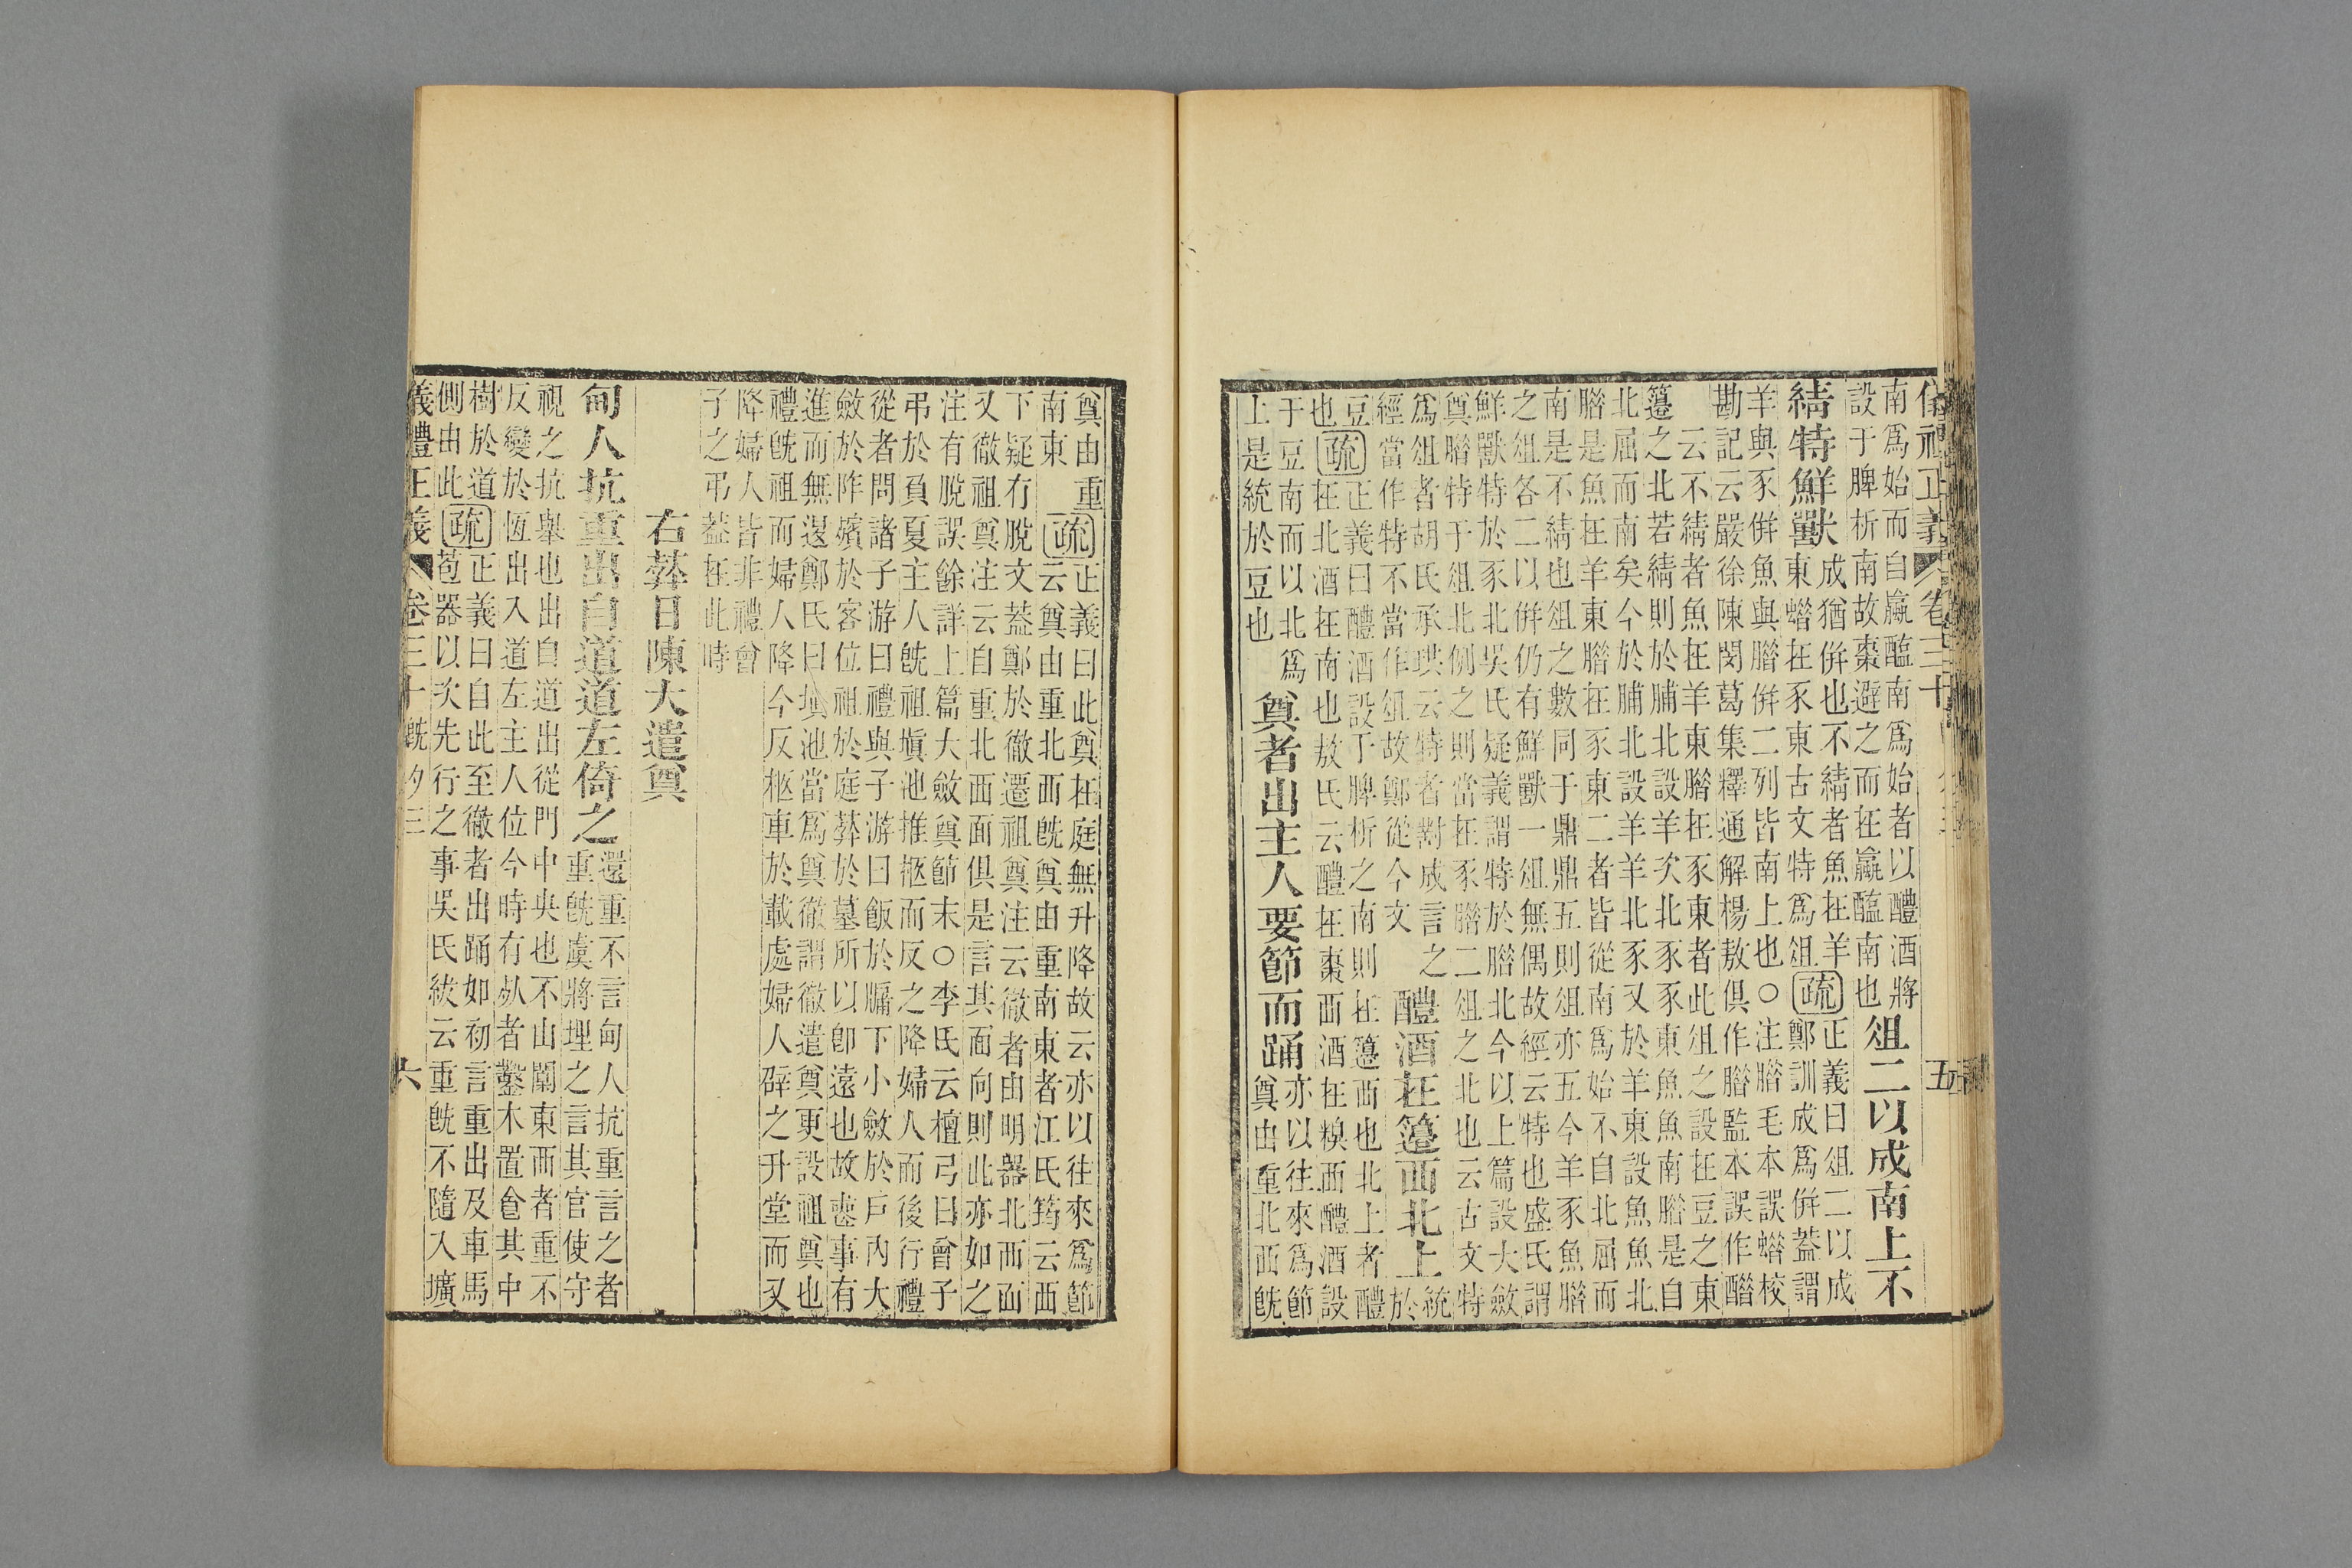 儀禮正義 卷三十 五
南爲始而自蠃醢南爲始者以醴酒將
設于脾析南故棗避之而在蠃醢南也 俎二以成南上不
綪特鮮獸 成猶併也不綪者魚在羊
東腊在豕東古文特爲俎 疏 正義曰俎二以成
鄭訓成爲併蓋謂
羊與豕併魚與腊併二列皆南上也○注腊毛本誤蜡校
勘記云嚴徐陳閔葛集釋通解楊敖俱作腊監本誤作醋
云不綪者魚在羊東腊在豕東者此俎之設在豆之東
籩之北若綪則於脯北設羊次北豕豕東魚魚南腊是自
北屈而南矣今於脯北設羊羊北豕又於羊東設魚魚北
腊是魚在羊東腊在豕東二者皆從南爲始不自北屈而
南是不綪也俎之數同于鼎鼎五則俎亦五今羊豕魚腊
之俎各二以併仍有鮮獸一俎無偶故經云特也盛氏謂
鮮獸特於豕北吳氏疑義謂特於腊北今以上篇設大斂
奠腊特于俎北例之則當在豕腊二俎之北也云古文特
爲俎者胡氏承珙云特者對成言之
經當作特不當作俎故鄭從今文 醴酒在籩西北上 統
於
豆
也 疏 正義曰醴酒設于脾析之南則在籩西也北上者醴
在北酒在南也敖氏云醴在棗西酒在糗西醴酒設
于豆南而以北爲
上是統於豆也 奠者出主人要節而踊 亦以往來爲節
奠由重北西既
奠由重
南東 疏 正義曰此奠在庭無升降故云亦以往來爲節
云奠由重北西既奠由重南東者江氏筠云西
下疑有脫文蓋鄭於徹遷祖奠注云徹者由明器北西面
又徹祖奠注云自重北西面俱是言其面向則此亦如之
注有脫誤餘詳上篇大斂奠節末○李氏云檀弓曰曾子
弔於負夏主人既祖塡池推柩而反之降婦人而後行禮
從者問諸子游曰禮與子游曰飯於牖下小斂於戶內大
斂於阼殯於客位祖於庭葬於墓所以卽遠也故喪事有
進而無退鄭氏曰塡池當爲奠徹謂徹遣奠更設祖奠也
禮既祖而婦人降今反柩車於載處婦人辟之升堂而又
降婦人皆非禮曾
子之弔蓋在此時
右葬日陳大遣奠
甸人抗重出自道道左倚之 還重不言甸人抗重言之者
重既虞將埋之言其官使守
視之抗舉也出自道出從門中央也不由闑東西者重不
反變於恆出入道左主人位今時有死者鑿木置食其中
樹於道
側由此 疏 正義曰自此至徹者出踊如初言重出及車馬
苞器以次先行之事吳氏紱云重既不隨入壙
儀禮正義 卷三十 既夕三 六